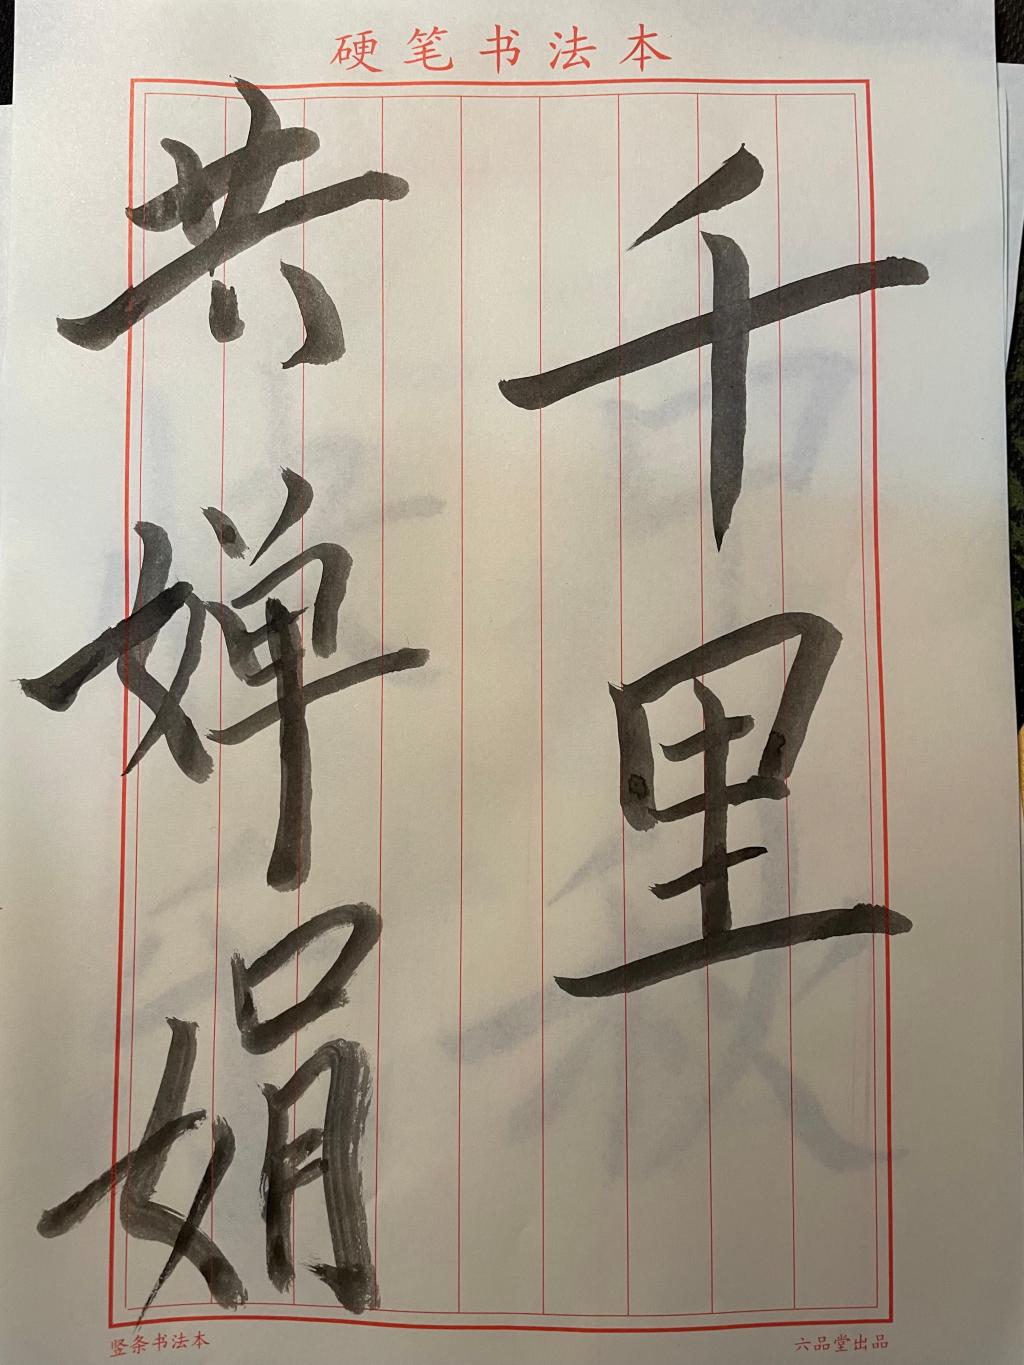 硬笔书法本
千里
共婵娟
竖条书法本
六品堂出品